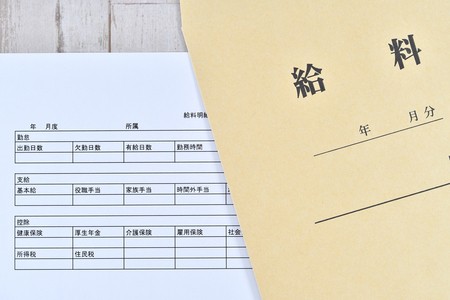 給料明細
年 月度 所属
勤怠
出勤日数 欠勤日数 有給日数 勤務時間
支給
基本給 役職手当 家族手当 時間外手当
控除
健康保険 厚生年金 介護保険 雇用保険 社会
所得税 住民税
給 料
年 月分